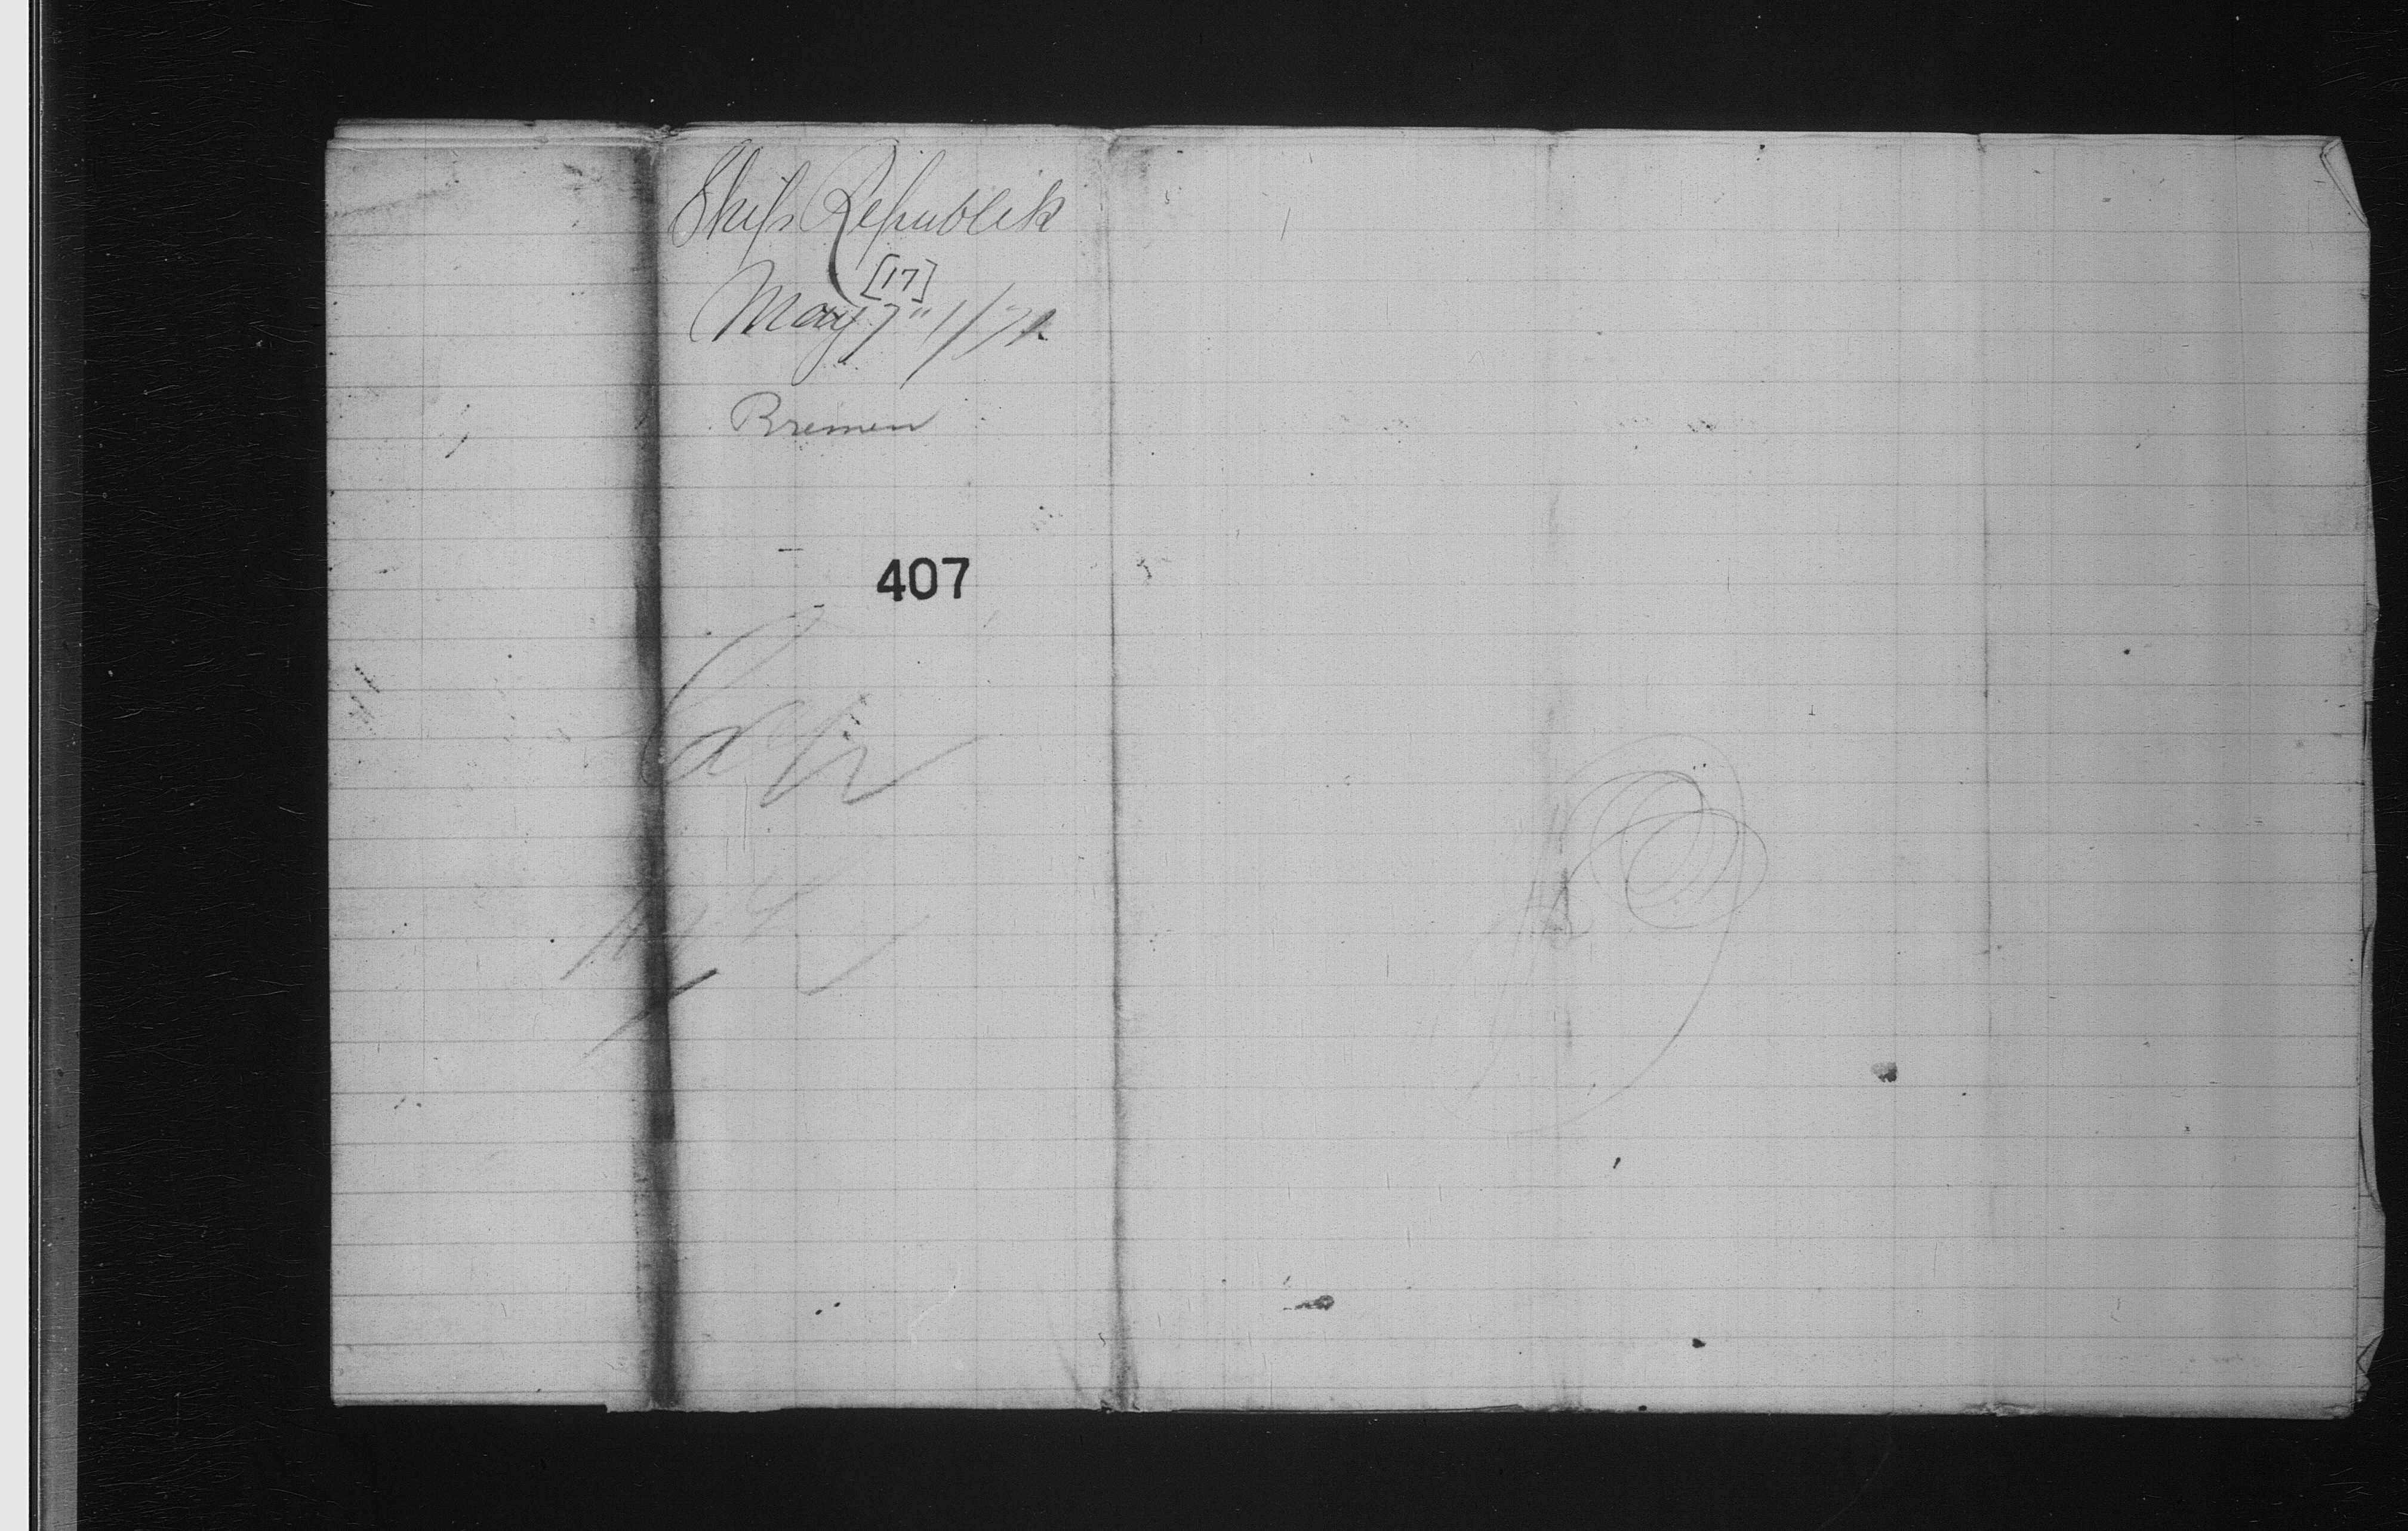 Ship Republik
[17]
May 7" 1/71
Bremen
407